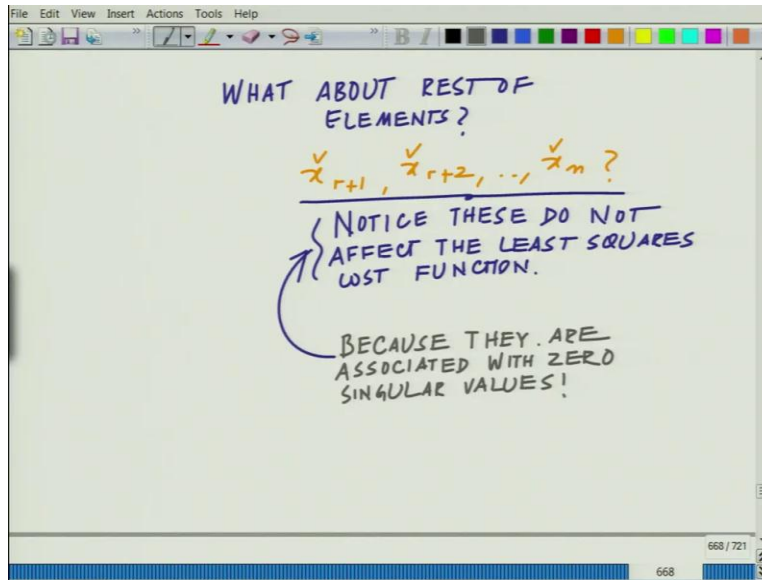 File Edit View Insert Actions Tools Help
B I
WHAT ABOUT REST OF
ELEMENTS?
x̌ r+1, x̌ r+2, .., x̌ n ?
NOTICE THESE DO NOT
AFFECT THE LEAST SQUARES
COST FUNCTION.
BECAUSE THEY. ARE
ASSOCIATED WITH ZERO
SINGULAR VALUES!
668 / 721
668